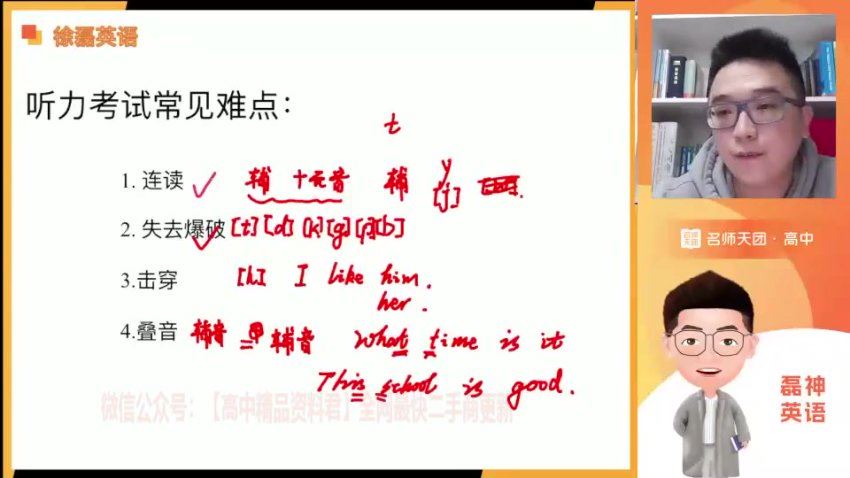 徐磊英语
听力考试常见难点：
t
1. 连读 辅 + 元音 辅 y [j]
2. 失去爆破 [t] [d] [k] [g] [p] [b]
3.击穿 [h] I like him.
her.
4.叠音 辅音 = 辅音 What time is it
This school is good.
微信公众号：【高中精品资料君】全网最快二手商更新
名师天团·高中
磊神
英语